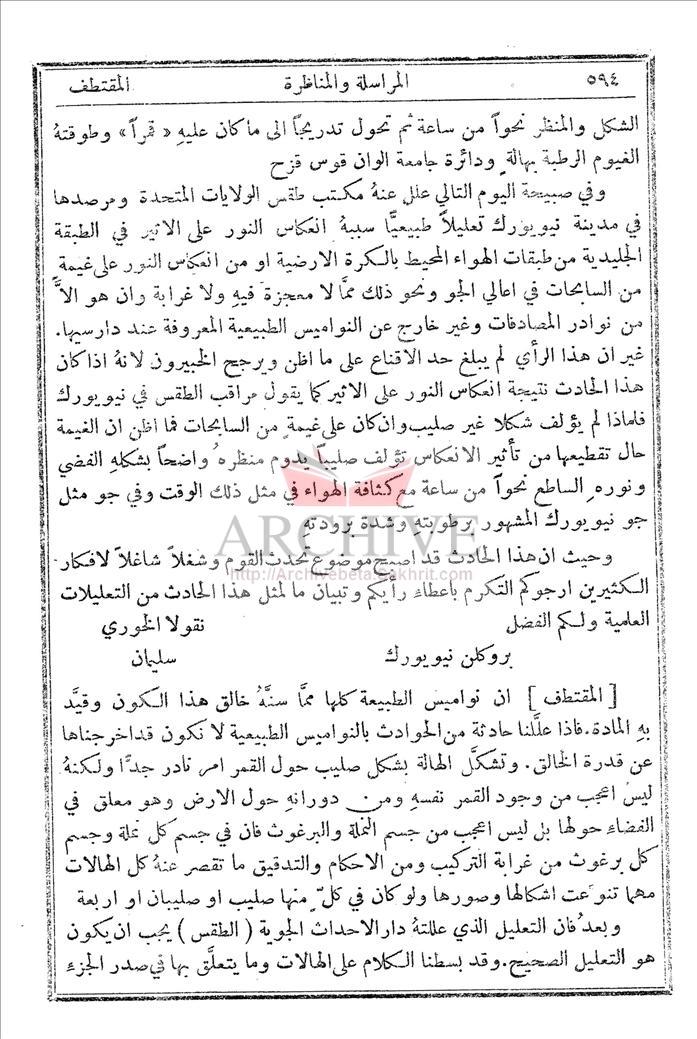 ٥٩٤ المراسلة والمناظرة المقتطف
الشكل والمنظر نحواً من ساعة ثم تحول تدريجاً الى ما كان عليهِ « قمراً » وطوقتهُ
الغيوم الرطبة بهالةٍ ودائرة جامعة الوان قوس قزح
وفي صبيحة اليوم التالي علل عنهُ مكتب طقس الولايات المتحدة ومرصدها
في مدينة نيويورك تعليلاً طبيعيًّا سببهُ انعكاس النور على الاثير في الطبقة
الجليدية من طبقات الهواء المحيط بالكرة الارضية او من انعكاس النور على غيمةٍ
من السابحات في اعالي الجو ونحو ذلك ممَّا لا معجزة فيهِ ولا غرابة وان هو الاَّ
من نوادر المصادفات وغير خارج عن النواميس الطبيعية المعروفة عند دارسيها.
غير ان هذا الرأي لم يبلغ حد الاقناع على ما اظن ويرجح الخبيرون لانهُ اذا كان
هذا الحادث نتيجة انعكاس النور على الاثير كما يقول مراقب الطقس في نيويورك
فلماذا لم يؤلف شكلا غير صليب وان كان على غيمةٍ من السابحات فما اظن ان الغيمة
حال تقطيعها من تأثير الانعكاس تؤلف صليباً يدوم منظرهُ واضحاً بشكله الفضي
ونوره الساطع نحواً من ساعة مع كثافة الهواء في مثل ذلك الوقت وفي جو مثل
جو نيويورك المشهور برطوبتهِ وشدة برودتهِ
ARCHIVE
وحيث ان هذا الحادث قد اصبح موضوع تحدث القوم وشغلاً شاغلاً لافكار
http://Archivebeta.Sakhrit.com
الكثيرين ارجوكم التكرم باعطاء رأيكم وتبيان ما لمثل هذا الحادث من التعليلات
العلمية ولكم الفضل نقولا الخوري
بروكلن نيويورك سليمان
[ المقتطف ] ان نواميس الطبيعة كلها ممَّا سنَّهُ خالق هذا الكون وقيَّد
بهِ المادة. فاذا علَّلنا حادثة من الحوادث بالنواميس الطبيعية لا نكون قد اخرجناها
عن قدرة الخالق. وتشكَّل الهالة بشكل صليب حول القمر امر نادر جدًّا ولكنهُ
ليس اعجب من وجود القمر نفسهِ ومن دورانهِ حول الارض وهو معلق في
الفضاء حولها بل ليس اعجب من جسم النملة والبرغوث فان في جسم كل نملة وجسم
كل برغوث من غرابة التركيب ومن الاحكام والتدقيق ما تقصر عنهُ كل الهالات
مهما تنوَّعت اشكالها وصورها ولو كان في كلٍّ منها صليب او صليبان او اربعة
وبعدُ فان التعليل الذي عللتهُ دار الاحداث الجوية ( الطقس ) يجب ان يكون
هو التعليل الصحيح. وقد بسطنا الكلام على الهالات وما يتعلَّق بها في صدر الجزء